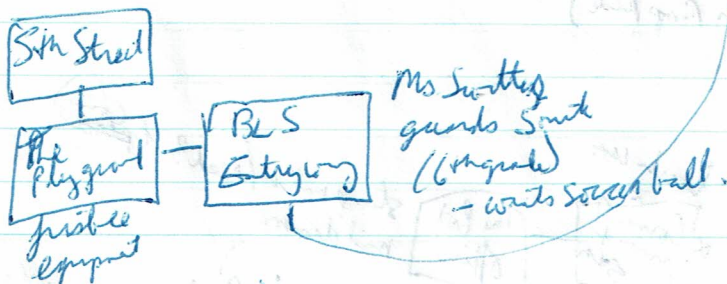 5th Street
The Playground
frisbee
equipment
BLS
Entryway
Ms
guards
(6th grade)
- wants soccer ball.